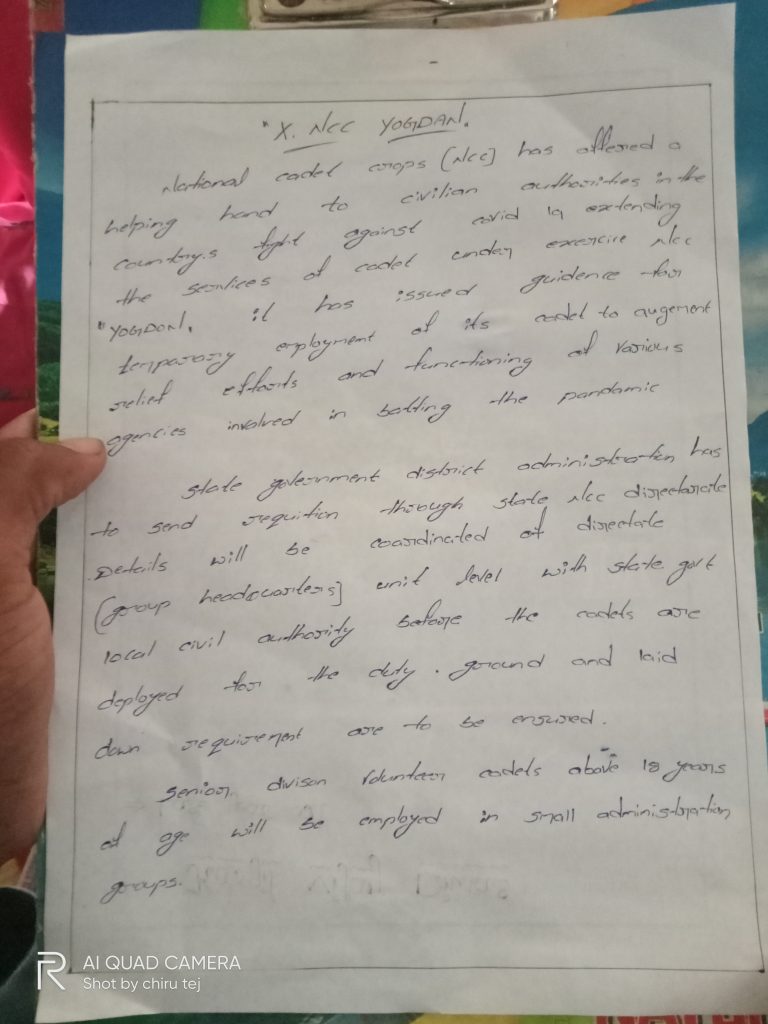 "X. NCC YOGDAN.
National cadet corps [NCC] has offered a
helping hand to civilian authorities in the
country.s fight against covid 19 extending
the services of cadet under exercire NCC
"YOGDON. it has issued guidence for
temporary employment of its cadel to augement
relief efforts and functioning of various
agencies involved in batting the pandamic
state government district administration has
to send requition through state NCC directorate
Details will be coardinated at directate
[group headcuarters] unit level with state govt
local civil authority before the cadets are
deployed for the duty. ground and laid
down requirement are to be ensured.
senior divison volunteer cadets above 18 years
of age will be employed in small administration
groups.
AI QUAD CAMERA
Shot by chiru tej